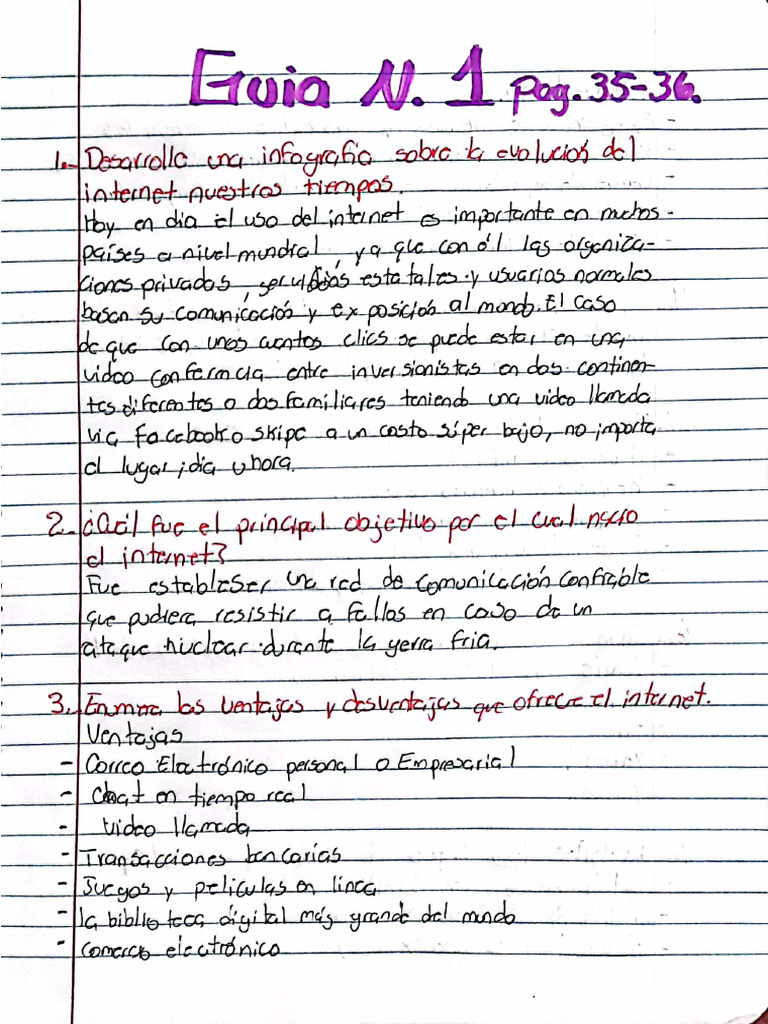 Guia N. 1 pag. 35-36.
1.- Desarrolle una infografia sobre la evolución del
internet nuestros tiempos.
Hoy en dia el uso del internet es importante en muchos
países a nivel mundial, ya que con él las organiza-
ciones privados, servicios estatales y usuarios normales
basan su comunicación y exposición al mondo. El caso
de que con unos cuantos clics se puede estar en una
video conferencia entre inversionistas en dos continen-
tes diferentes o dos familiares teniendo una video llamada
via facebook o skipe a un costo súper bajo, no importa
el lugar, día u hora.
2. ¿Cuál fue el principal objetivo por el cual nacio
el internet?
Fue estableser una red de comunicación confiable
que pudiera resistir a fallos en caso de un
ataque nuclear durante la gerra fria.
3. Enumera los ventajas y desventajas que ofrece el internet.
Ventajas
- Correo Electrónico personal o Empresarial
- Chat en tiempo real
- Video llamada
- Transacciones bancarias
- Juegos y peliculas en linea
- la biblioteca digital más grande del mundo
- comercio electrónico